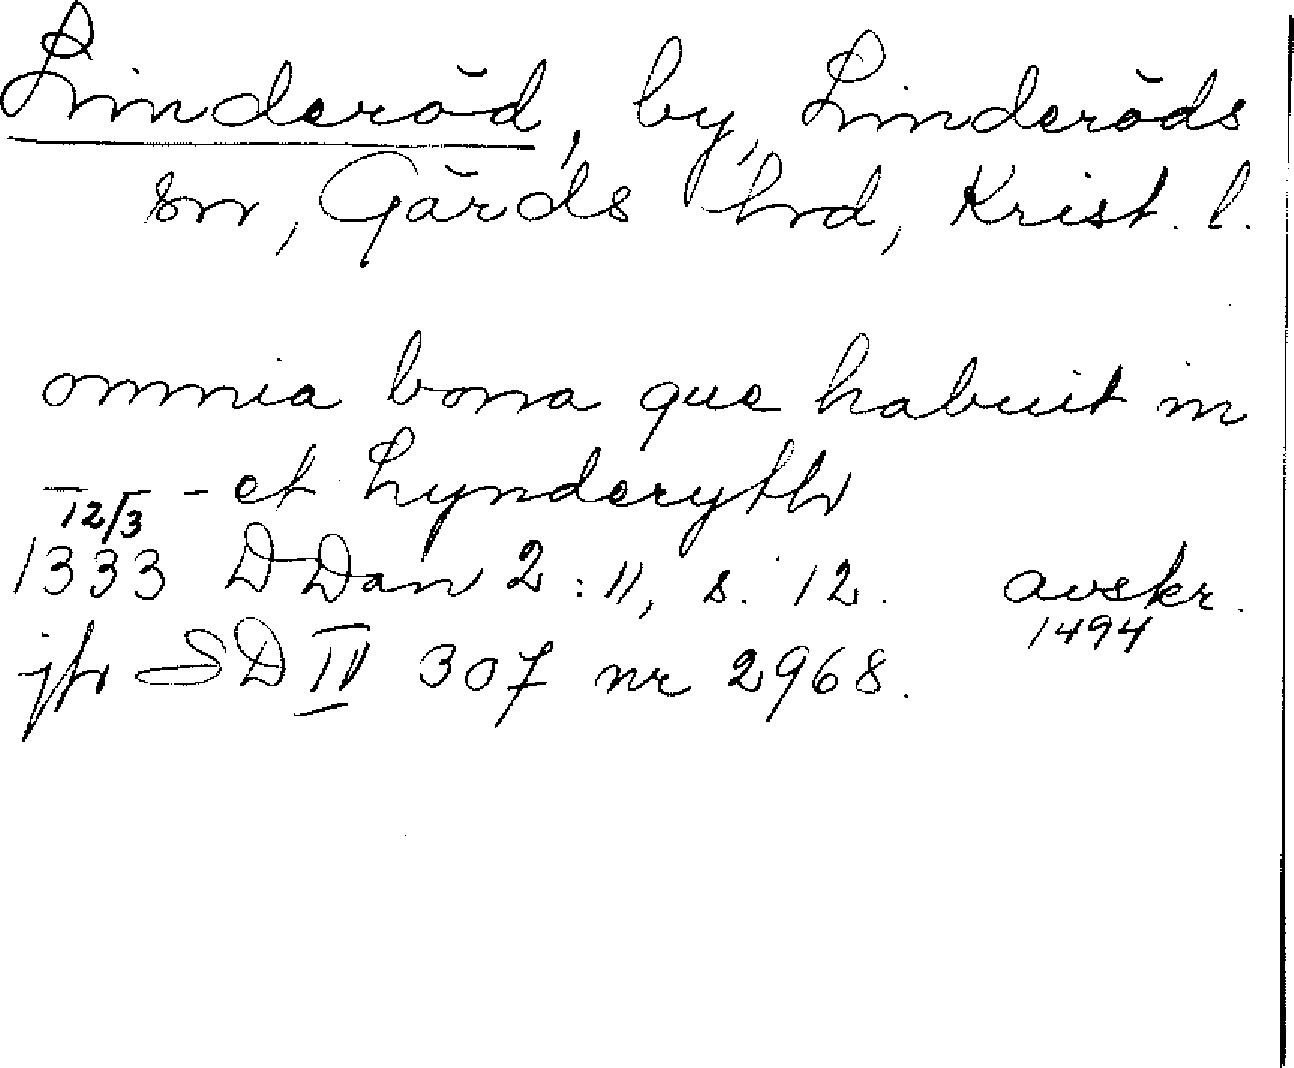 Linderöd, by, Linderöds
sn, Gärds hrd, Krist. l.
omnia bona que habuit in
— — - et Lynderyth
12/3
1333 DDan 2:11, s. 12. avskr.
1494
jfr SD IV 307 nr 2968.